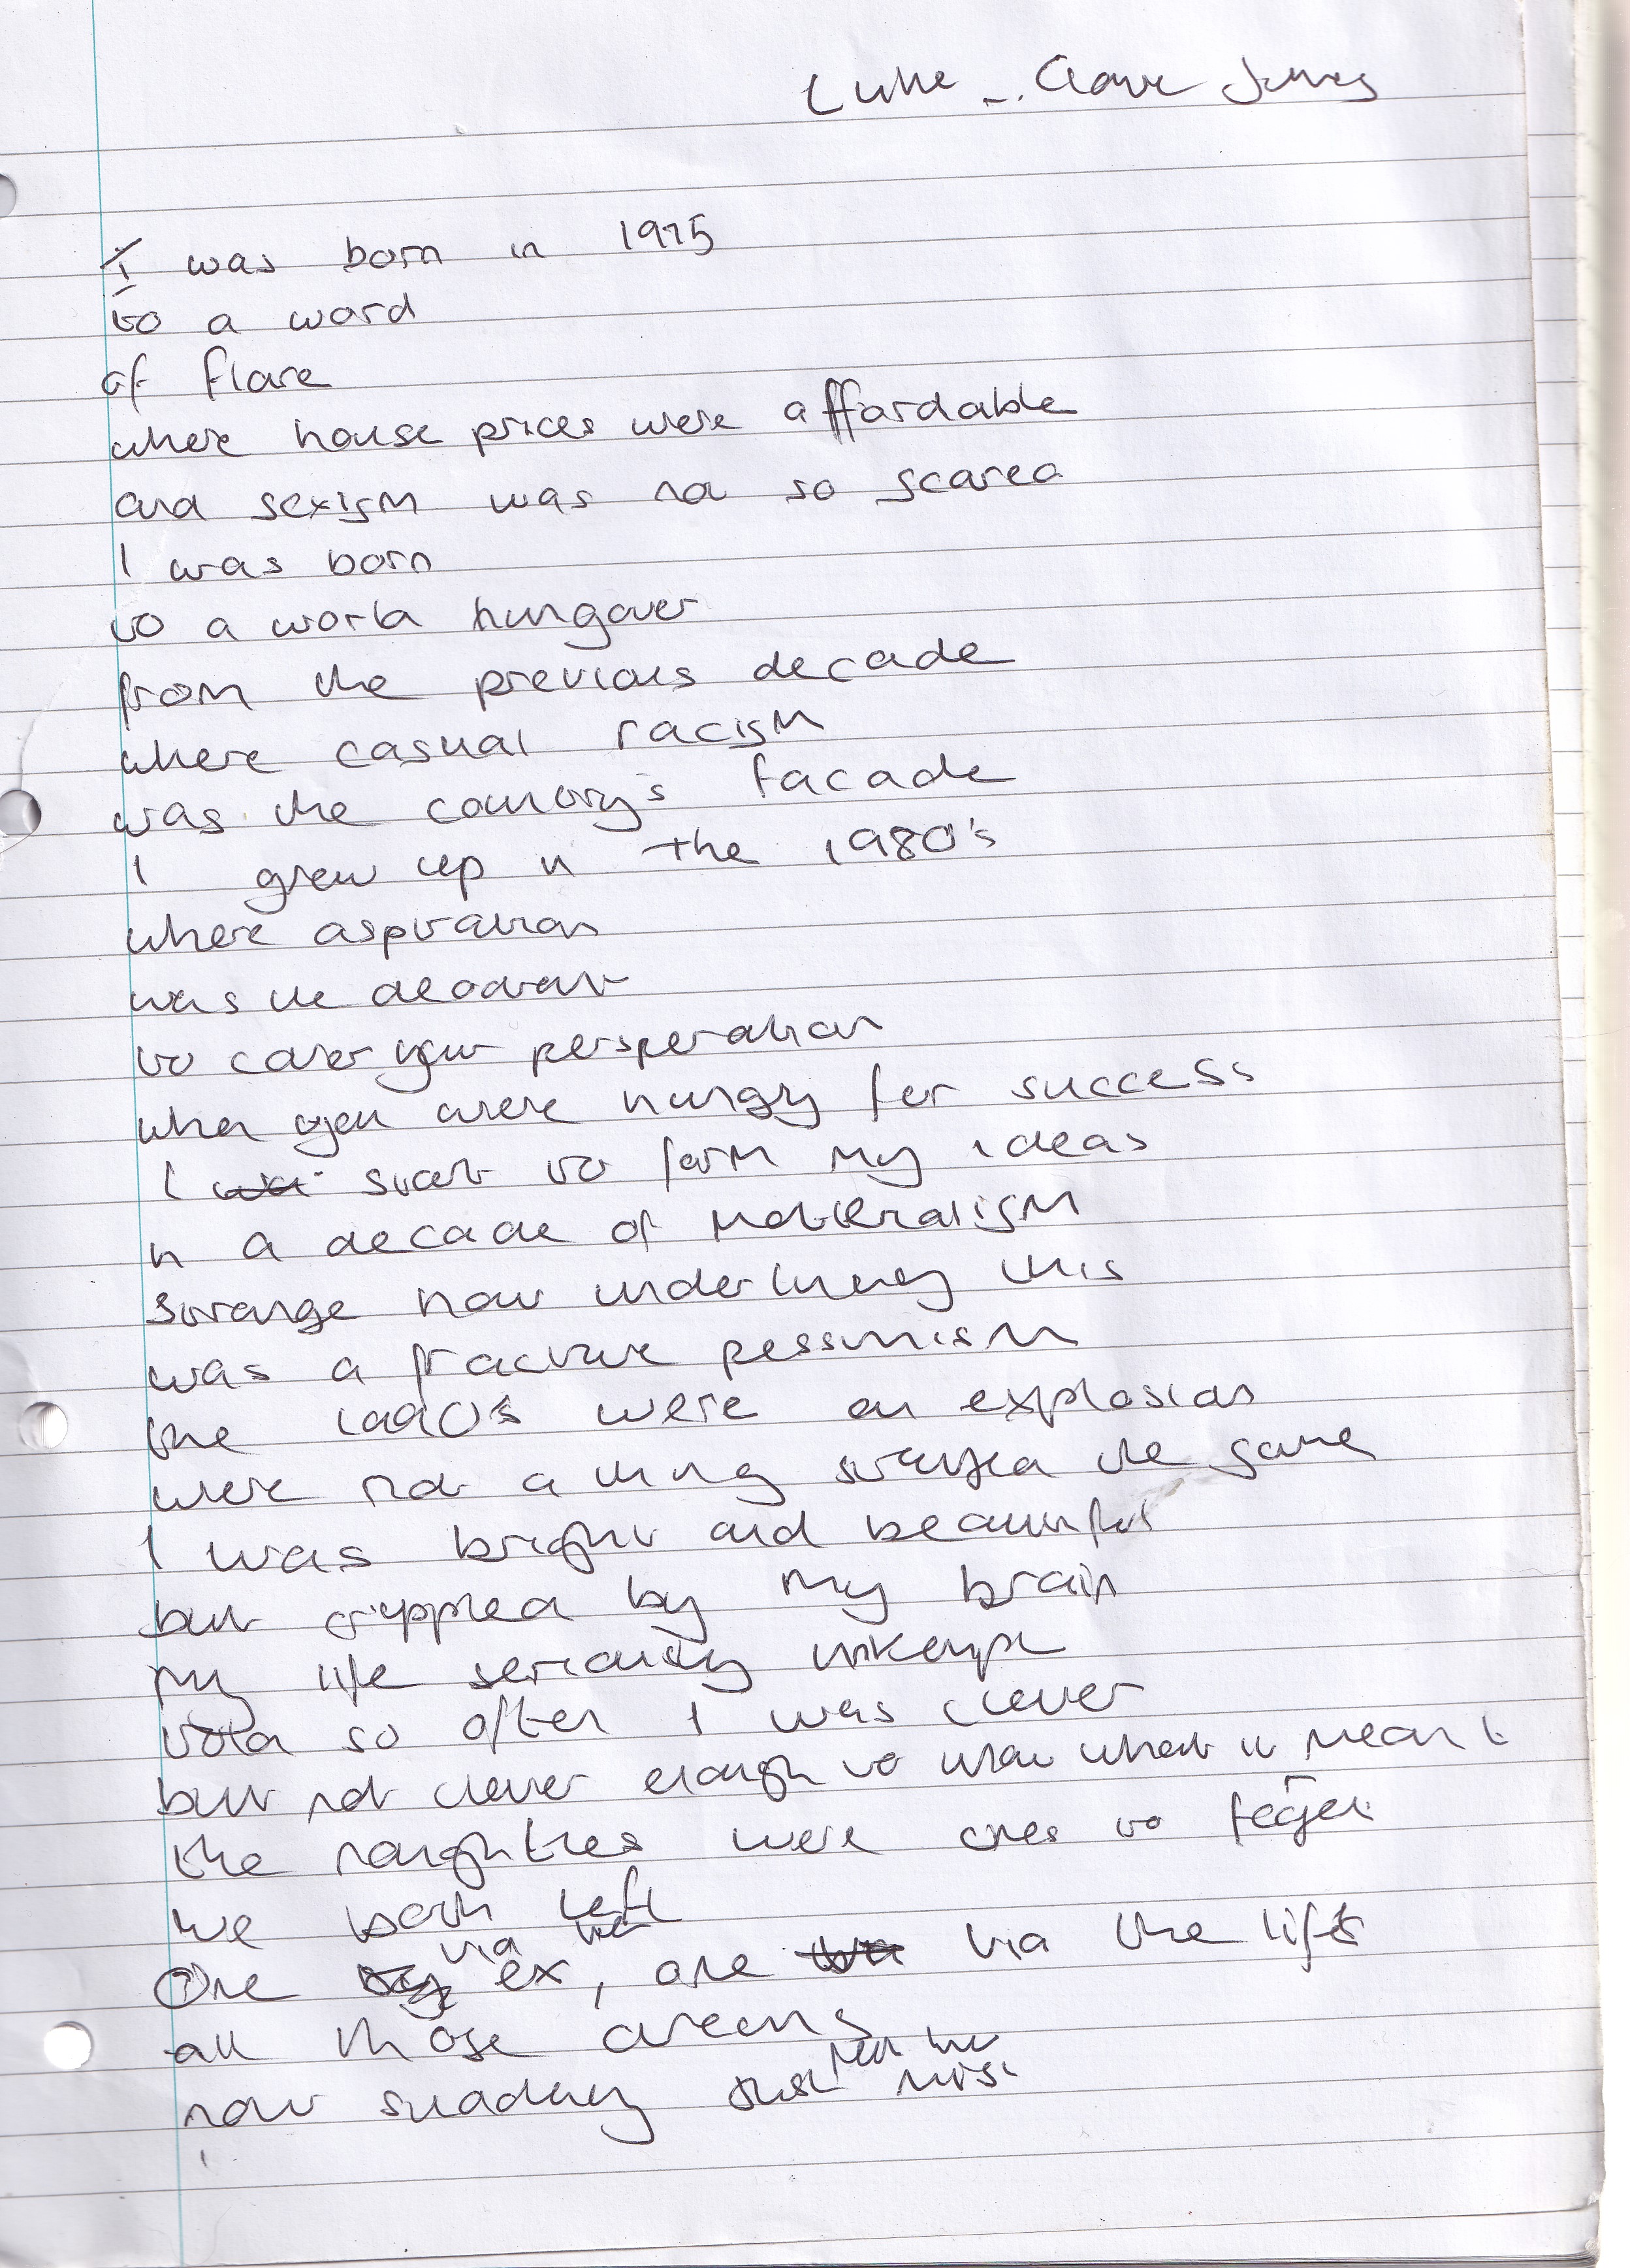 Luke - Clare Jones
I was born in 1975
to a world
of flare
where house prices were affordable
and sexism was not so scared
I was born
to a world hungover
from the previous decade
where casual racism
was the country's facade
I grew up in the 1980's
where aspiration
was the
to cover your persperation
when you were hungry for success
I start to form my ideas
in a decade of materalism
strange how underlining this
was a fracture pessimism
the 1990's were an explosion
were not a thing stayed the same
I was bright and beautiful
but crippled by my brain
my life seriously unkempt
told so often I was clever
but not clever enough to know what it meant
the naughties were ones to forget
we both left
One via ex, one via the lift
all those dreams
now suddenly